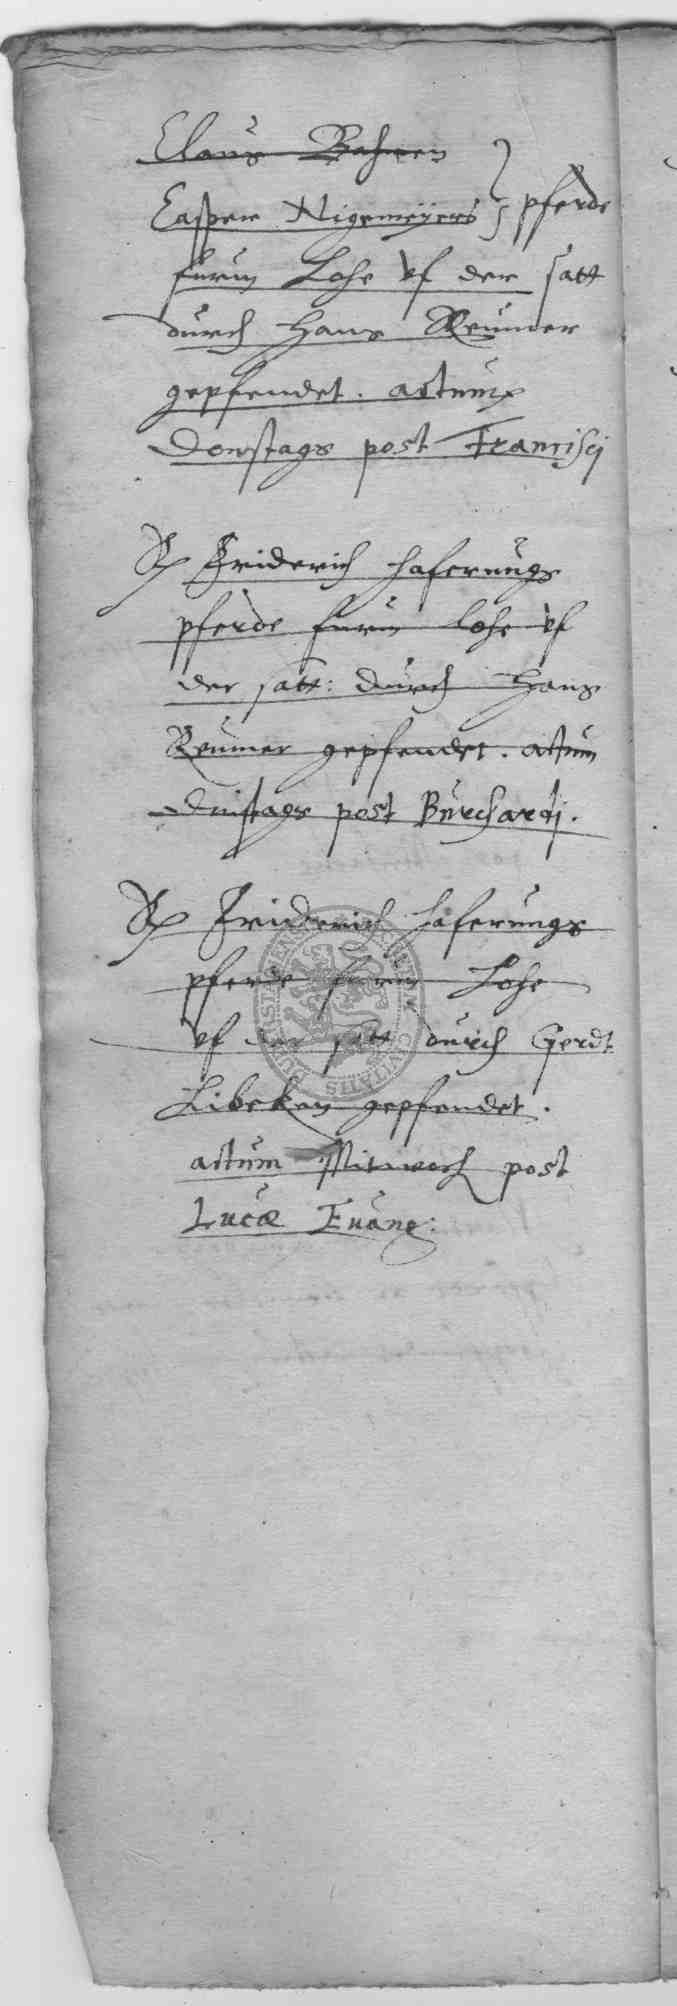 Claus Bahren
Casper Nigemeyers } pferde
furm Lohe uf der satt
durch Hans Reumer
gepfendet. actum
Donstags post Francisci
Friderich Haferungs
pferde furm Lohe uf
der satt: durch Hans
Reumer gepfendet. actum
Dinstags post Burchardi.
Friderich Haferungs
pferde furm Lohe
uf der satt durch Gerdt
Libeken gepfendet.
actum Mitwoch post
Lucæ Evang: